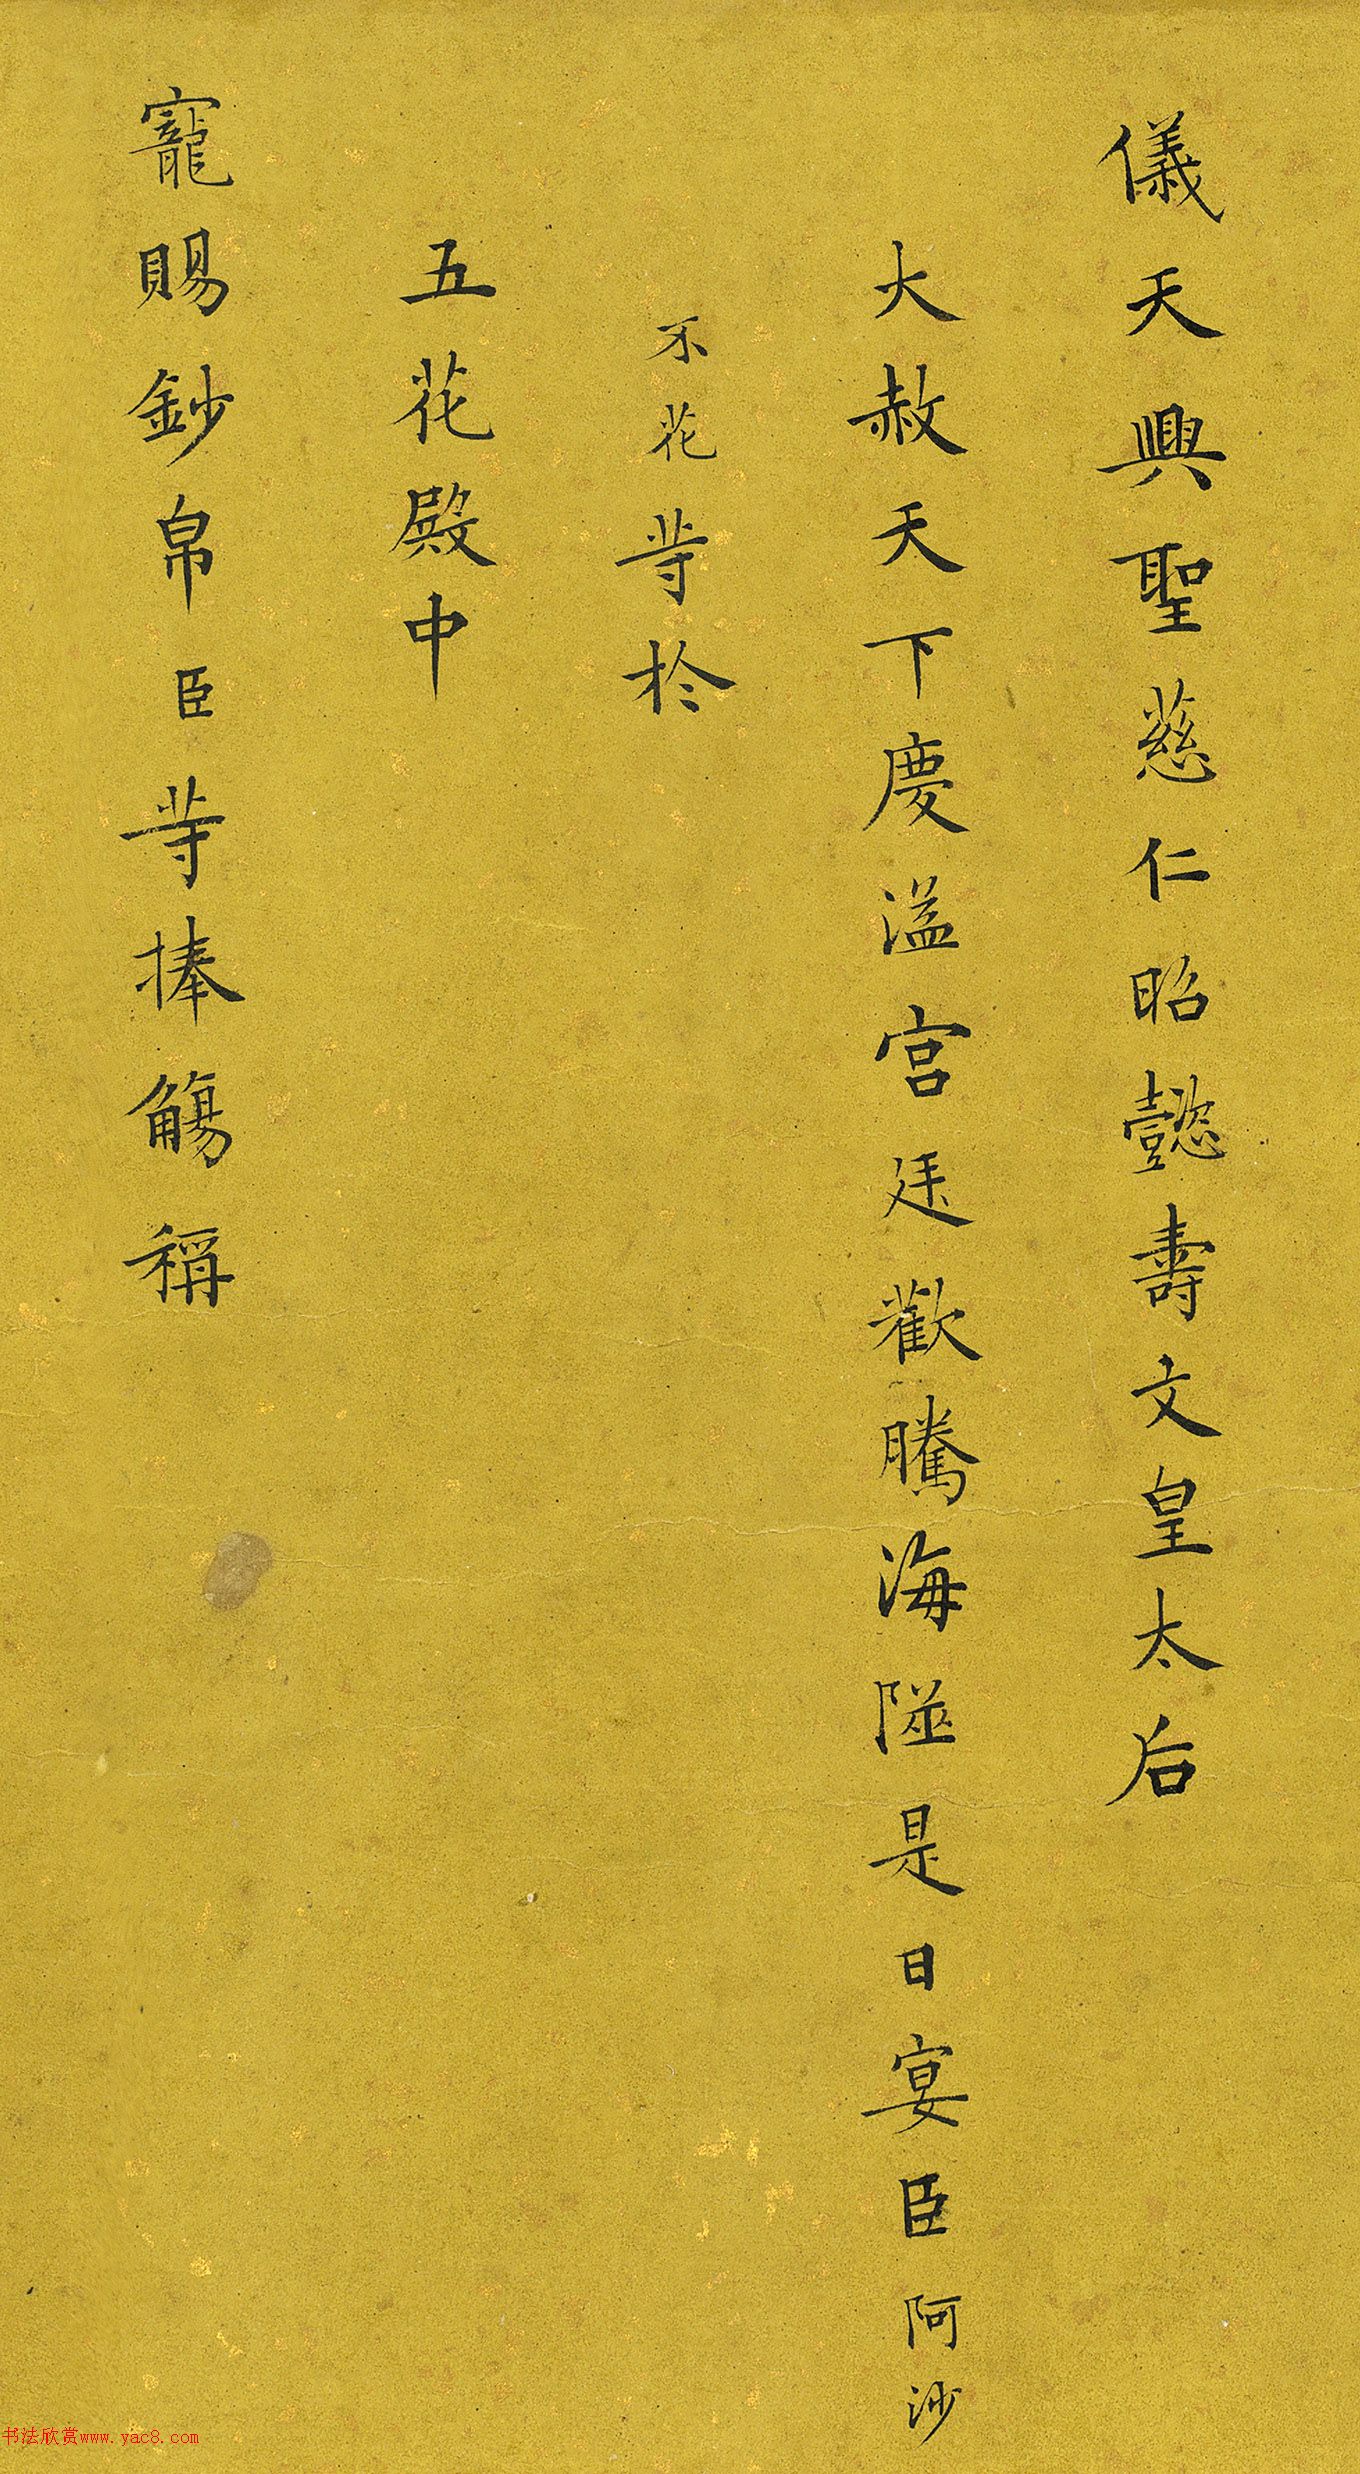 儀天興聖慈仁昭懿壽文皇太后
大赦天下慶溢宫廷歡騰海隅是日宴臣阿沙
不花等於
五花殿中
寵賜鈔帛臣等捧觴稱
书法欣赏www.yac8.com